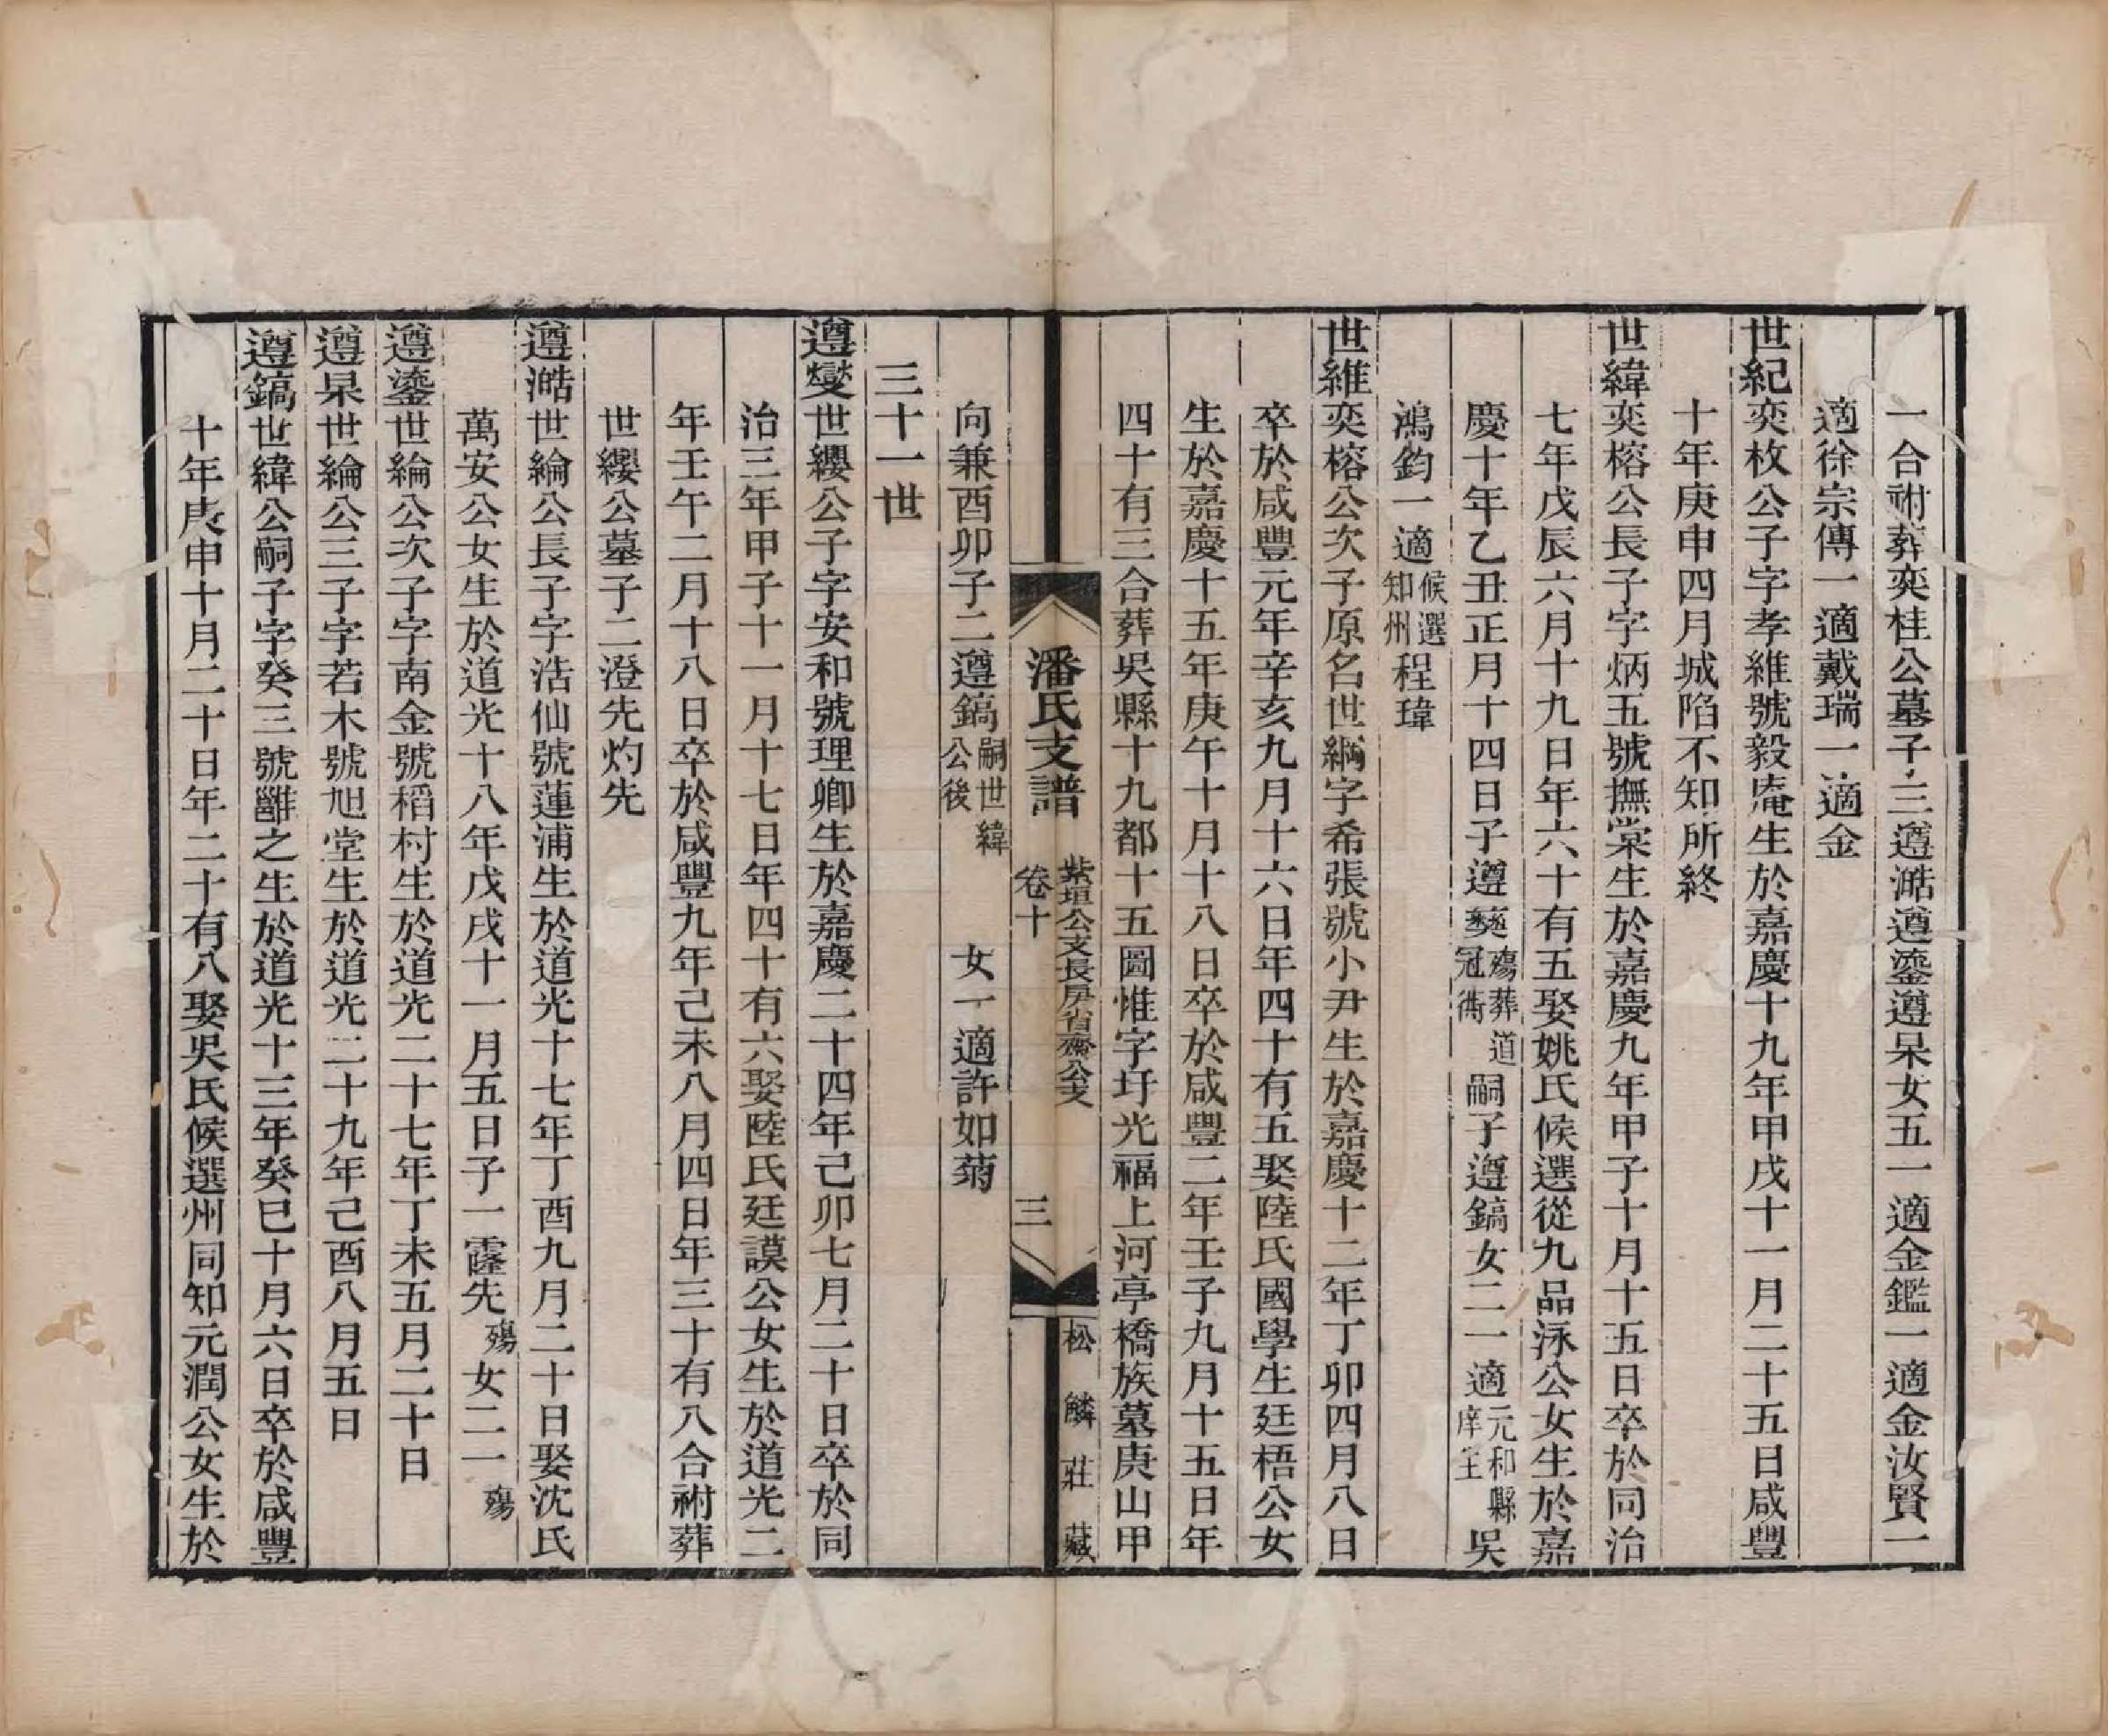 一合祔葬奕桂公墓子三遵澔遵鎏遵杲女五一適金鑑一適金汝賢一
適徐宗傳一適戴瑞一適金
世紀奕枚公子字孝維號毅庵生於嘉慶十九年甲戌十一月二十五日咸豐
十年庚申四月城陷不知所終
世緯奕榕公長子字炳五號撫棠生於嘉慶九年甲子十月十五日卒於同治
七年戊辰六月十九日年六十有五娶姚氏候選從九品泳公女生於嘉
慶十年乙丑正月十四日子遵彝殤葬道冠衖嗣子遵鎬女二一適元和縣庠生吳
鴻鈞一適候選知州程瑋
世維奕榕公次子原名世綱字希張號小尹生於嘉慶十二年丁卯四月八日
卒於咸豐元年辛亥九月十六日年四十有五娶陸氏國學生廷梧公女
生於嘉慶十五年庚午十月十八日卒於咸豐二年壬子九月十五日年
四十有三合葬吳縣十九都十五圖惟字圩光福上河亭橋族墓庚山甲
潘氏支譜 卷十 紫垣公支長房省齋公支 三 松麟莊藏
向兼酉卯子二遵鎬嗣世緯公後 女一適許如菊
三十一世
遵燮世纓公子字安和號理卿生於嘉慶二十四年己卯七月二十日卒於同
治三年甲子十一月十七日年四十有六娶陸氏廷謨公女生於道光二
年壬午二月十八日卒於咸豐九年己未八月四日年三十有八合祔葬
世纓公墓子二澄先灼先
遵澔世綸公長子字浩仙號蓮浦生於道光十七年丁酉九月二十日娶沈氏
萬安公女生於道光十八年戊戌十一月五日子一霳先殤女二一殤
遵鎏世綸公次子字南金號稻村生於道光二十七年丁未五月二十日
遵杲世綸公三子字若木號旭堂生於道光二十九年己酉八月五日
遵鎬世緯公嗣子字癸三號雝之生於道光十三年癸巳十月六日卒於咸豐
十年庚申十月二十日年二十有八娶吳氏候選州同知元潤公女生於